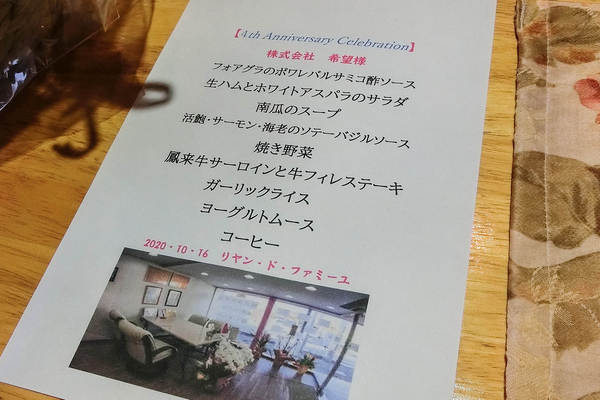 【4th Anniversary Celebration】
株式会社　希望様
フォアグラのポワレバルサミコ酢ソース
生ハムとホワイトアスパラのサラダ
南瓜のスープ
活鮑・サーモン・海老のソテーバジルソース
焼き野菜
鳳来牛サーロインと牛フィレステーキ
ガーリックライス
ヨーグルトムース
コーヒー
2020・10・16　リヤン・ド・ファミーユ